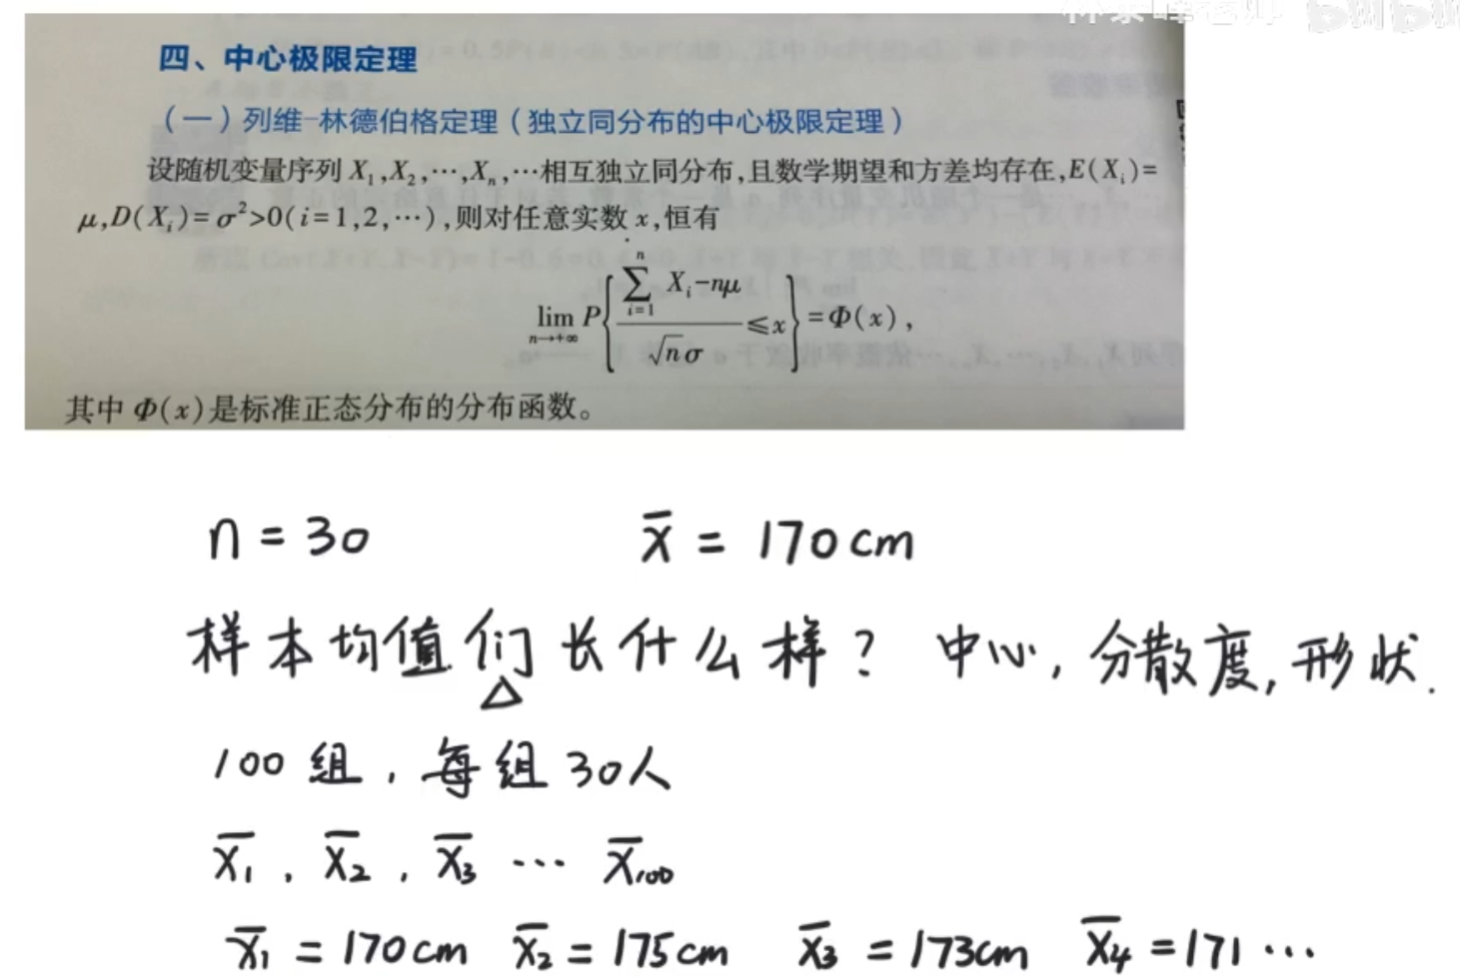 四、中心极限定理
(一)列维-林德伯格定理(独立同分布的中心极限定理)
设随机变量序列 X₁,X₂,…,Xₙ,…相互独立同分布,且数学期望和方差均存在,E(Xᵢ)=
μ,D(Xᵢ)=σ²>0(i=1,2,…),则对任意实数 x,恒有
lim_{n→+∞} P{ (∑_{i=1}^{n} Xᵢ-nμ) / (√n σ) ≤x } =Φ(x),
其中 Φ(x)是标准正态分布的分布函数。
n = 30 x̄ = 170cm
样本均值们长什么样? 中心, 分散度, 形状.
△
100 组, 每组 30人
x̄₁, x̄₂, x̄₃ … x̄₁₀₀
x̄₁ = 170cm x̄₂ = 175cm x̄₃ = 173cm x̄₄ = 171 …